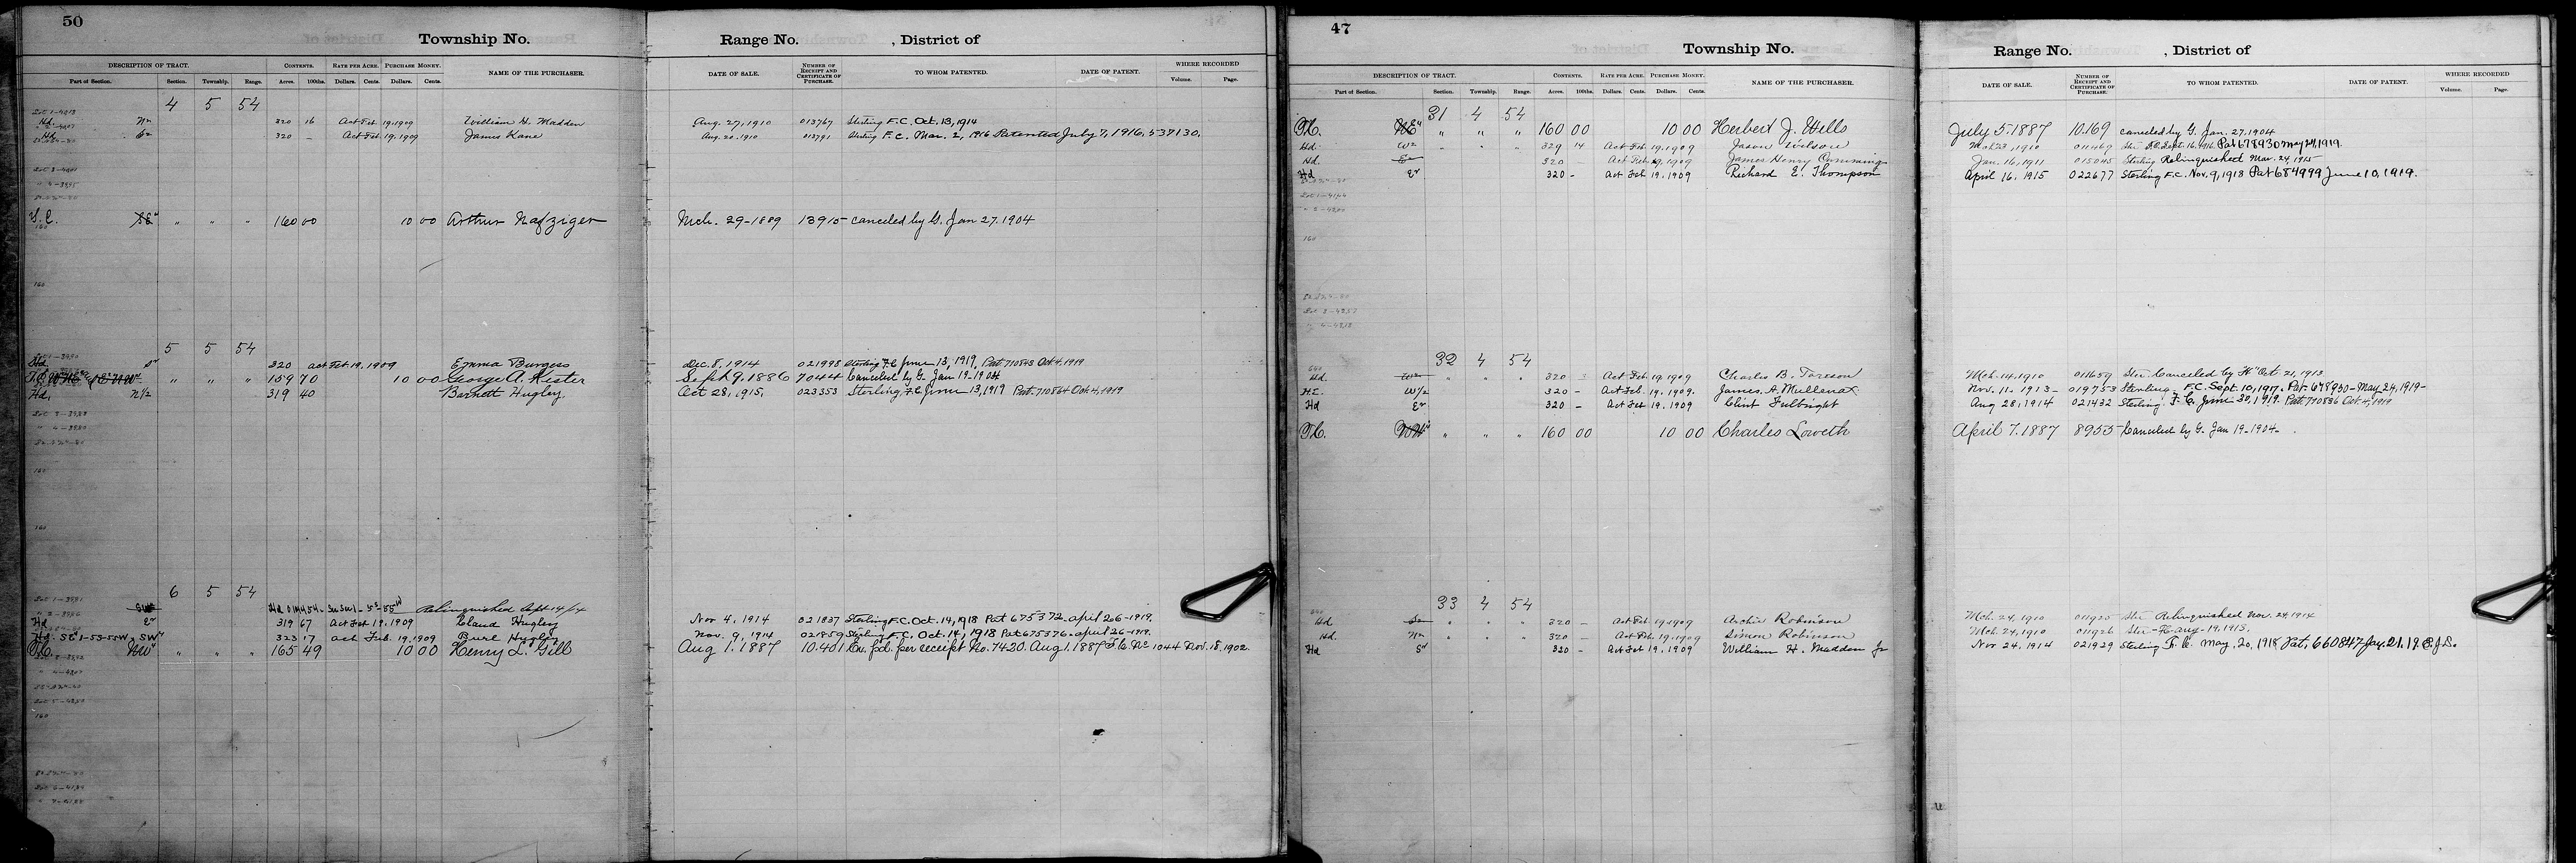 50
Township No.
Range No. , District of
DESCRIPTION OF TRACT. CONTENTS. RATE PER ACRE. PURCHASE MONEY. NAME OF THE PURCHASER. DATE OF SALE. NUMBER OF RECEIPT AND CERTIFICATE OF PURCHASE. TO WHOM PATENTED. DATE OF PATENT. WHERE RECORDED
Part of Section. Section. Township. Range. Acres. 100ths. Dollars. Cents. Dollars. Cents. Volume. Page.
4 5 54
Hd. N½ 320 16 Act Feb. 19, 1909 William H. Madden Aug. 27, 1910 013767 Sterling F.C. Oct. 13, 1914
Hd. S½ 320 – Act Feb. 19, 1909 James Kane Aug. 20, 1910 013791 Sterling F.C. Mar. 2, 1916 Patented July 7, 1916, 537130.
T.C. SE¼ " " " 160 00 10 00 Arthur Nafziger Mch. 29-1889 13915 canceled by G. Jan 27, 1904
160
160
5 5 54
Hd. S½ 320 act Feb 19, 1909 Emma Burgess Dec. 8, 1914 021998 Sterling F.C. June 13, 1919, Pat. 710863 Oct. 4, 1919
T.C. " " " 159 70 10 00 George A. Kester Sept. 9, 1886 7044 Canceled by G. Jan 19-1904
Hd. N½ 319 40 Barnett Hugley Oct 28, 1915, 023353 Sterling, F.C. June 13, 1919 Pat. 710864 Oct. 4, 1919
160
160
6 5 54
Relinquished Sept 14/14
Hd E½ 319 67 Act Feb 19, 1909 Leland Hugley Nov 4, 1914 021837 Sterling F.C. Oct. 14, 1918 Pat 675372 april 26-1919,
Hd. SE¼ 1-5S-55W, SW¼ 323 17 act Feb. 19, 1909 Burl Hugley Nov. 9, 1914 021859 Sterling F.C. Oct. 14, 1918 Pat 675376 april 26-1919.
T.C. NW¼ " " " 165 49 10 00 Henry L. Gill Aug 1. 1887 10.401 Ex. fcd. per receipt No. 7420. Aug 1. 1887 F.C. No 1044 Nov. 18, 1902.
160
47
Township No.
Range No. , District of
DESCRIPTION OF TRACT. CONTENTS. RATE PER ACRE. PURCHASE MONEY. NAME OF THE PURCHASER. DATE OF SALE. NUMBER OF RECEIPT AND CERTIFICATE OF PURCHASE. TO WHOM PATENTED. DATE OF PATENT. WHERE RECORDED
Part of Section. Section. Township. Range. Acres. 100ths. Dollars. Cents. Dollars. Cents. Volume. Page.
31 4 54
T.C. NE¼ " " " 160 00 10 00 Herbert J. Wells July 5. 1887 10.169 canceled by G. Jan. 27, 1904
Hd. W½ " " " 329 14 Act Feb 19, 1909 Jason Wilson Mch 23, 1910 011469 Ster. F.C. Sept. 16, 1916 Pat 678930 may 24, 1919.
Hd. E½ 320 – Act Feb 19, 1909 James Henry Cummings Jan. 16, 1911 015045 Sterling Relinquished Mar. 24, 1915
Hd E½ 320 – Act Feb. 19, 1909 Richard E. Thompson April 16, 1915 022677 Sterling F.C. Nov. 9, 1918 Pat 684999 June 10, 1919.
160
32 4 54
640
Hd. W½ " " " 320 Act Feb 19, 1909 Charles B. Toreson Mch. 14, 1910 011659 Ster Canceled by "H" Oct 21, 1913
H.E. W/2 320 – Act Feb. 19, 1909. James A. Mullenax Nov. 11-1913- 019753 Sterling. F.C. Sept. 10, 1917. Pat. 678930-May 24, 1919-
Hd E½ 320 – Act Feb 19, 1909 Clint Fulbright Aug 28, 1914 021432 Sterling. F.C. June 30, 1919. Pat. 710836 Oct. 4, 1919
T.C. NW¼ " " " 160 00 10 00 Charles Loweth April 7. 1887 8955 Canceled by G. Jan 19-1904-
33 4 54
640
Hd S½ " " " 320 – Act Feb 19, 1909 Archie Robinson Mch. 24, 1910 011925 Ster Relinquished Nov. 24, 1914
Hd. N½ " " " 320 – Act Feb. 19, 1909 Simon Robinson Mch. 24, 1910 011926 Ster-FC-aug-19, 1915,
Hd S½ 320 – Act Feb 19, 1909 William H. Madden Jr Nov 24, 1914 021929 Sterling F.C. May, 20, 1918 Pat, 660847 Jan. 21, 19. E.J.S.